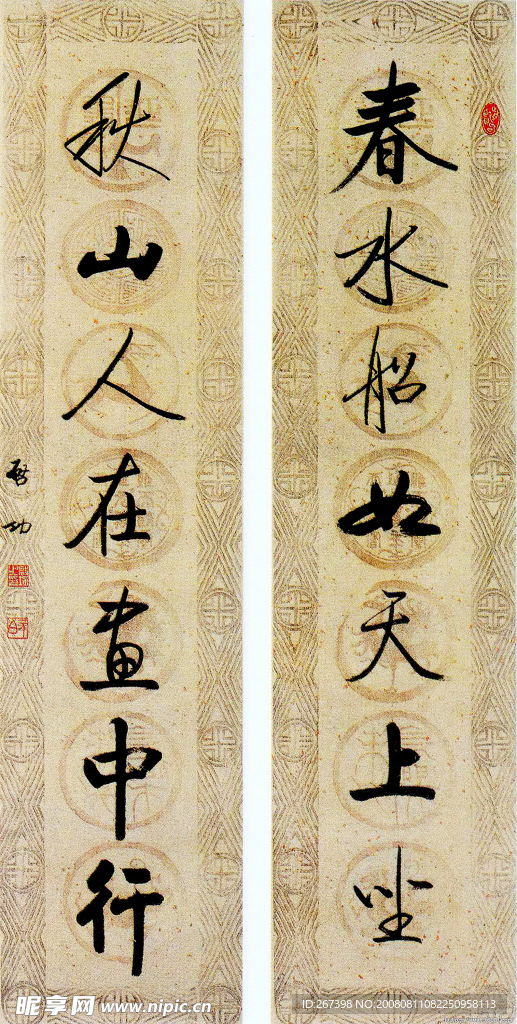 春水船如天上坐
秋山人在画中行
启功
昵享网 www.nipic.cn
ID:267398 NO:20080811082250958113